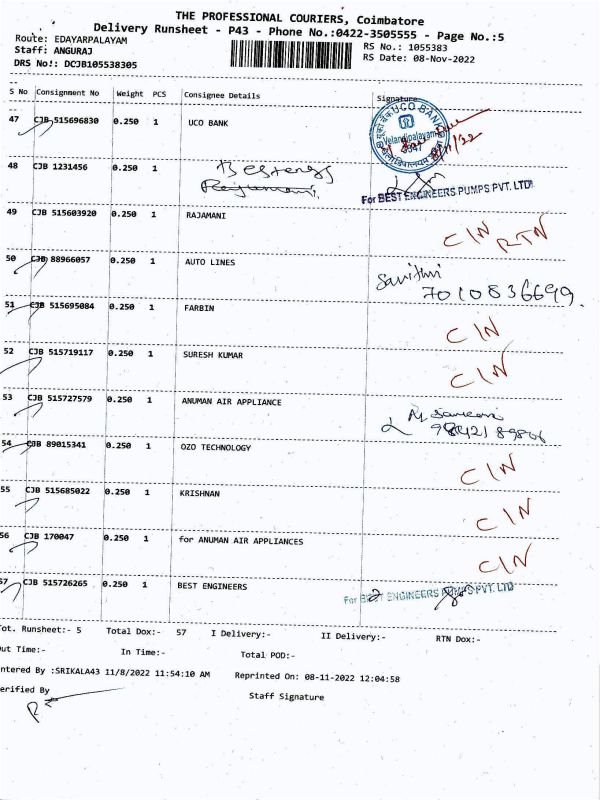 THE PROFESSIONAL COURIERS, Coimbatore
Delivery Runsheet - P43 - Phone No.:0422-3505555 - Page No.:5
Route: EDAYARPALAYAM
RS No.: 1055383
Staff: ANGURAJ
RS Date: 08-Nov-2022
DRS No!: DCJB105538305
S No Consignment No Weight PCS Consignee Details Signature
47 CJB 515696830 0.250 1 UCO BANK
UCO BANK
Velandipalayam
8/11/22
48 CJB 1231456 0.250 1 Besteners
Rajamani.
For BEST ENGINEERS PUMPS PVT. LTD
49 CJB 515603920 0.250 1 RAJAMANI
CIN RTN
50 CJB 88966057 0.250 1 AUTO LINES
Savithri
7010836699.
51 CJB 515695084 0.250 1 FARBIN
CIN
52 CJB 515719117 0.250 1 SURESH KUMAR
CIN
53 CJB 515727579 0.250 1 ANUMAN AIR APPLIANCE
54 CJB 89015341 0.250 1 OZO TECHNOLOGY
CIN
55 CJB 515685022 0.250 1 KRISHNAN
CIN
56 CJB 170047 0.250 1 for ANUMAN AIR APPLIANCES
CIN
57 CJB 515726265 0.250 1 BEST ENGINEERS
For BEST ENGINEERS PUMPS PVT. LTD
Tot. Runsheet:- 5 Total Dox:- 57 I Delivery:- II Delivery:- RTN Dox:-
Out Time:- In Time:- Total POD:-
ntered By :SRIKALA43 11/8/2022 11:54:10 AM Reprinted On: 08-11-2022 12:04:58
erified By Staff Signature